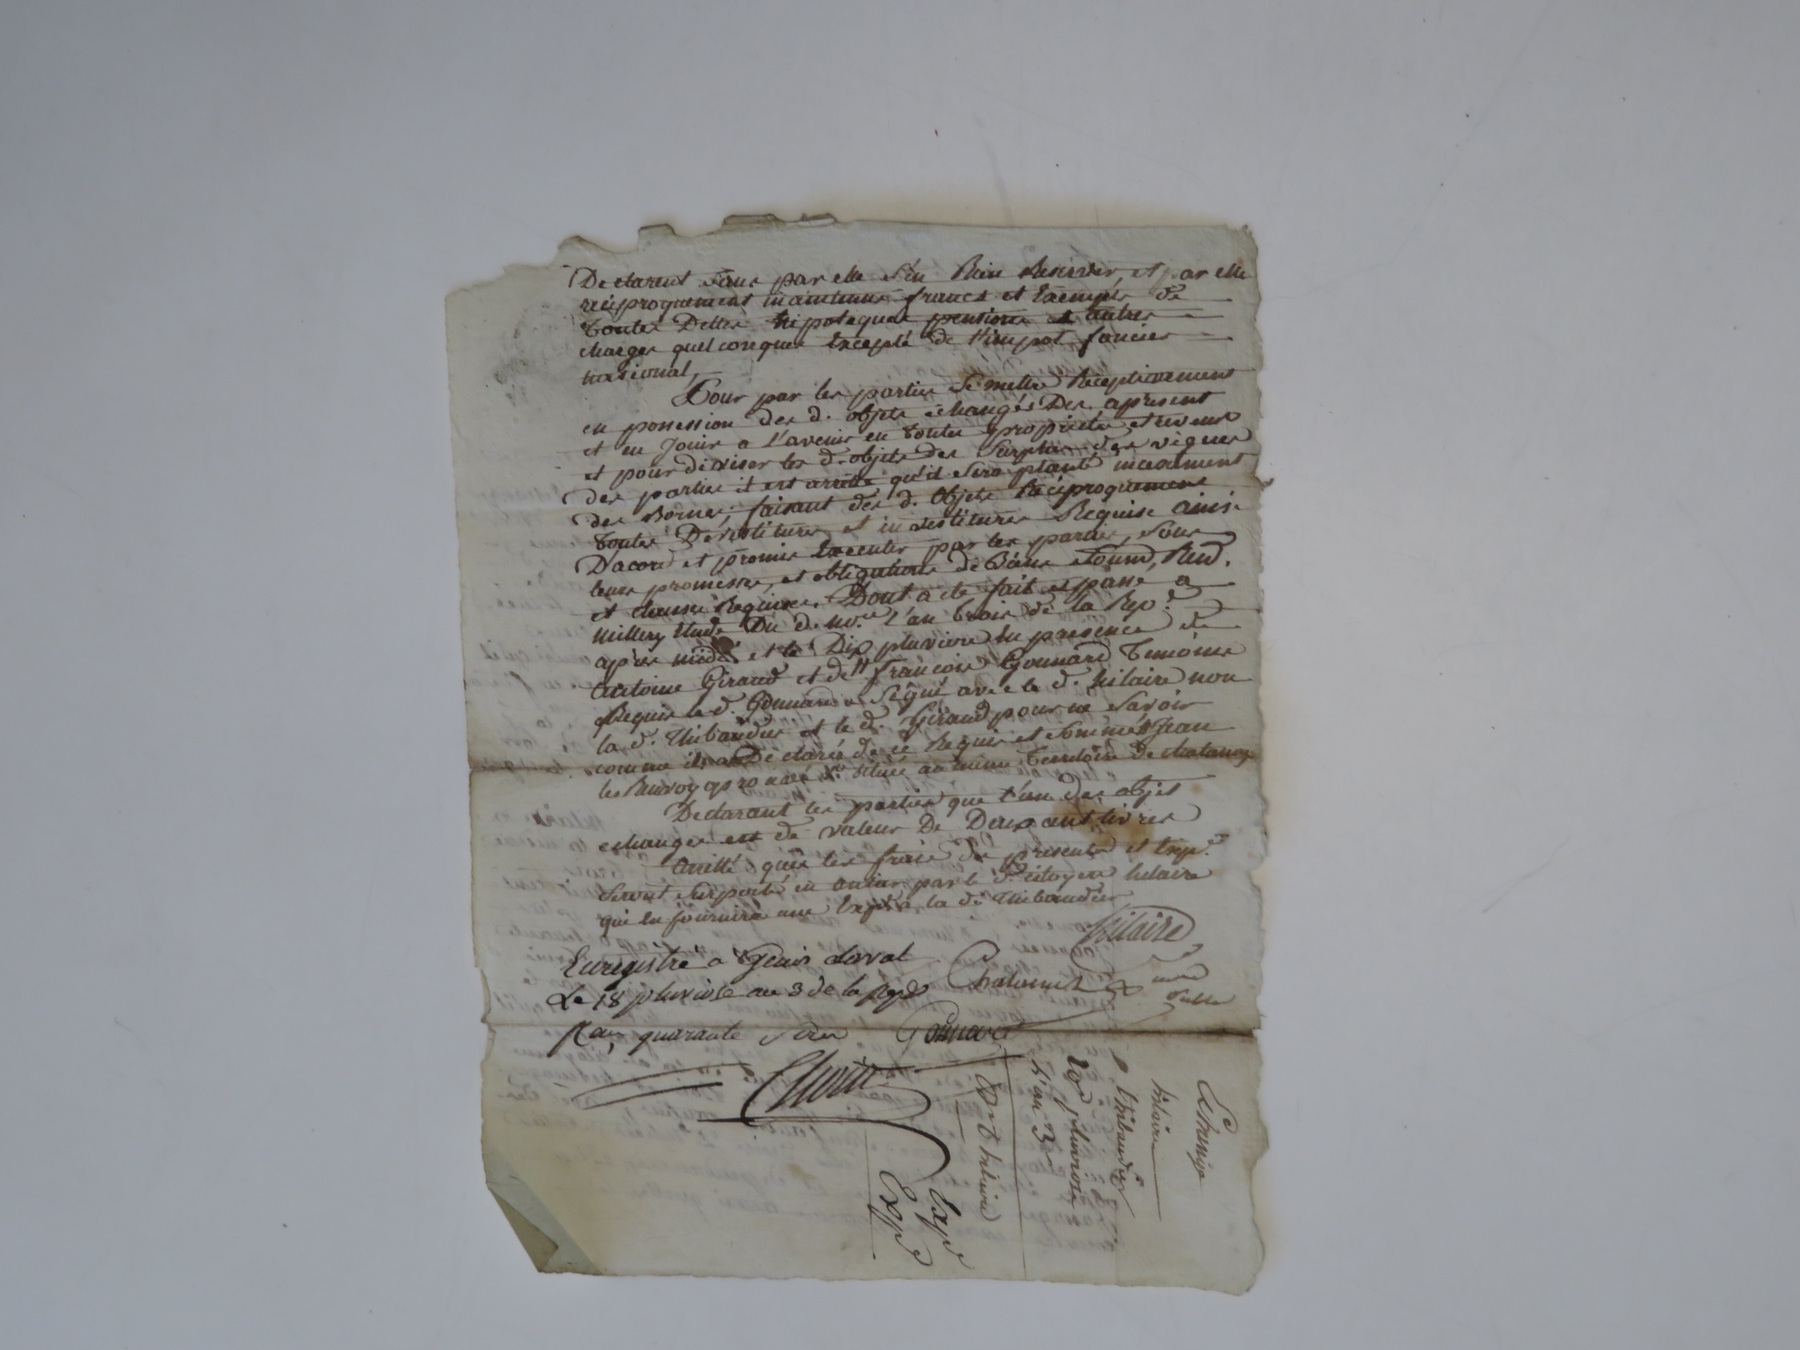 Declarent dans par elle s'en Rien Reserver, et par elle
reciproquement maintenus francs et Exempts de
toutes Dettes hipoteques pensions et autres
charges quelconques Excepté de l'impot foncier
nasional,
Pour par les parties se mettre Receptivement
en possession des d. objets échangés Des apresent
et en Jouir a l'avenir en toutes propriétés
et pour diviser les d. objets des Surplus des vignes
des parties il est arrette qu'il sera planté incessament
des Bornes, faisant des d. objets Reciproquement
toutes Devestitures et investitures Requise Ainsi
Dacord et promis Executer par les parties, sous
leurs promesses, et obligations de Biens
et clauses Requises. Dont a été fait et passé a
Millery Etude Du d. no.re l'an trois de la Rep.e
après midi et le Dix pluviose En presence de
Antoine Giraud et de françois Gonnard temoins
Requis le d. Gonnard a Signé avec le d. hilaire non
la d. thibaudier et le d. Giraud pour ne Savoir
comme ils ont Déclaré de ce Requis et Sommés
situés au même territoire de
Declarant les parties que l'un des objets
echanges est de valeur De Deux cent livres
Arretté que les frais des presentes et Exp.e
Seront Supporté en entier par le d. citoyen hilaire
qui En fournira une Exp.e a la d. thibaudier
hilaire
Enregistré a Genis Laval
Le 18 pluviose an 3 de la Rep
quarante Gonnard
Echange
hilaire
thibaudier
10 pluviose
L'an 3
hilaire
Exp
Exp